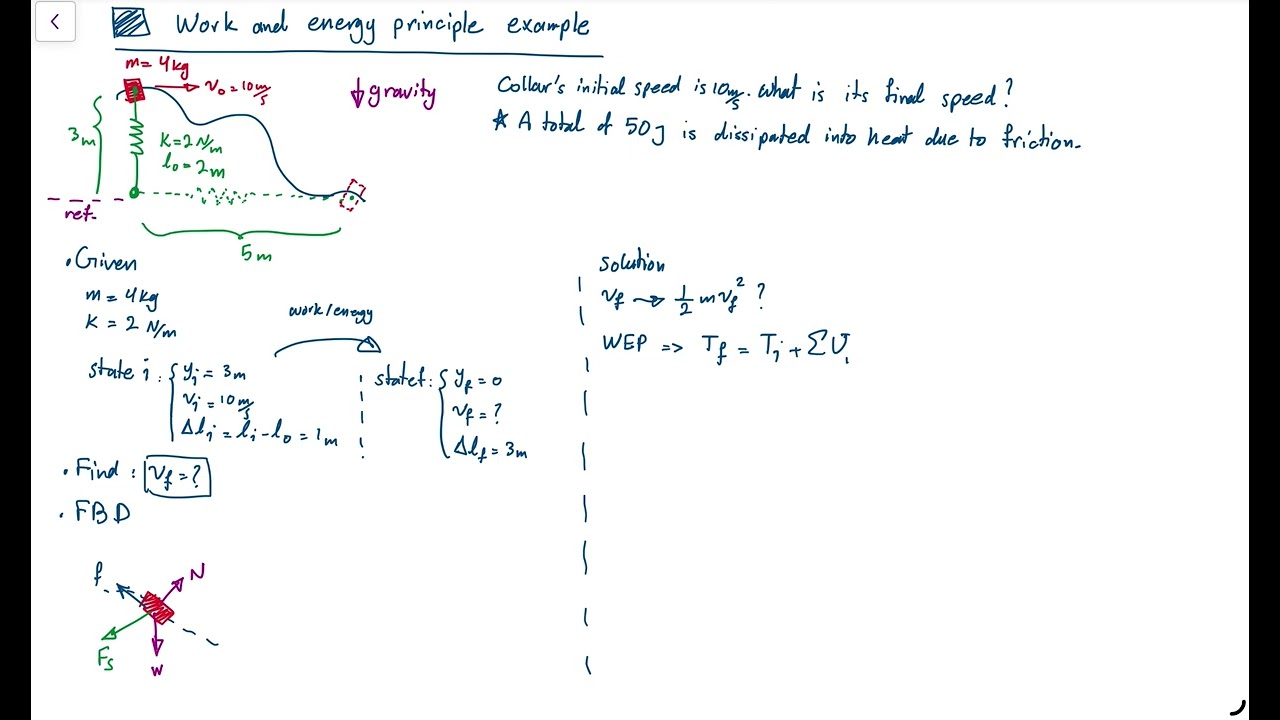 Work and energy principle example
m = 4kg
v₀ = 10 m/s
↓ gravity
Collar's initial speed is 10 m/s. what is its final speed?
* A total of 50 J is dissipated into heat due to friction.
3m
K = 2 N/m
l₀ = 2m
ref.
5m
• Given
m = 4kg
K = 2 N/m
work/energy
state i : { yᵢ = 3m
vᵢ = 10 m/s
Δlᵢ = lᵢ - l₀ = 1m
state f : { y_f = 0
v_f = ?
Δl_f = 3m
• Find : v_f = ?
• FBD
f
N
Fs
w
Solution
v_f → ½ m v_f² ?
WEP => T_f = Tᵢ + ΣU